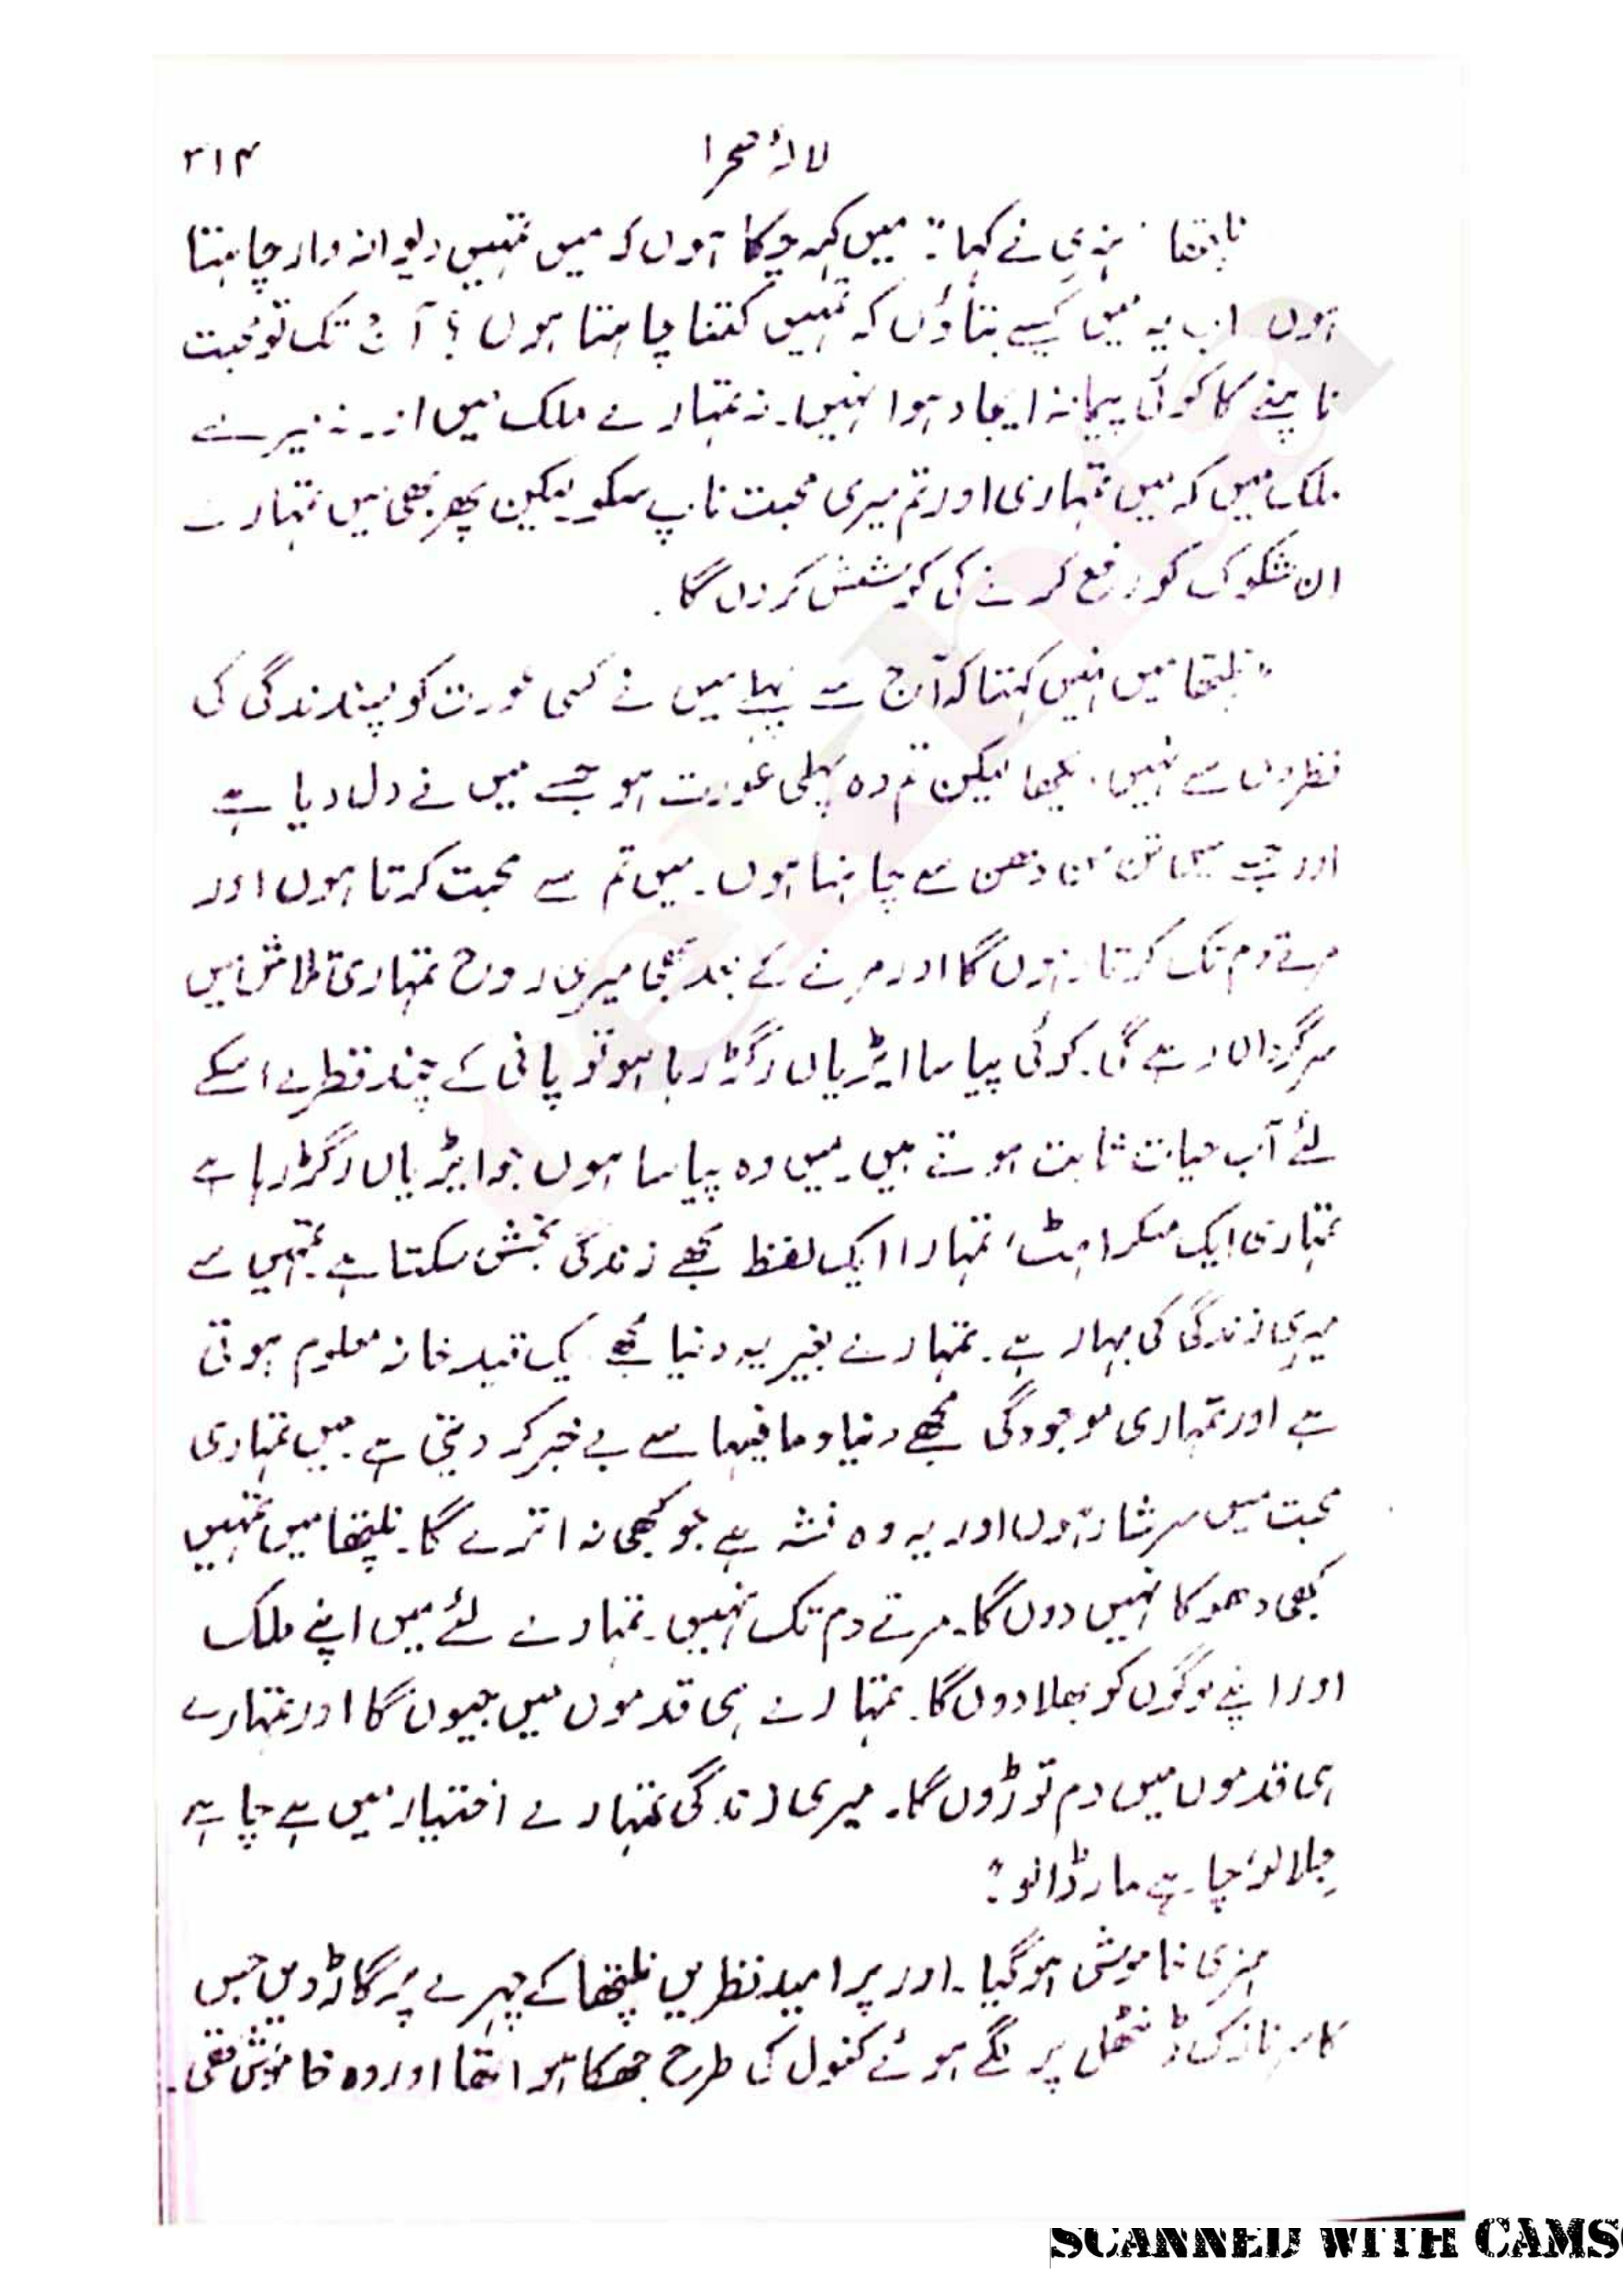 لالۂ صحرا ۳۱۴
نلپتھا ہنری نے کہا:" میں کہہ چکا ہوں کہ میں تمہیں دیوانہ وار چاہتا
ہوں اب یہ میں کیسے بتاؤں کہ تمہیں کتنا چاہتا ہوں؟ آج تک تو محبت
ناپنے کا کوئی پیمانہ ایجاد ہوا نہیں۔ نہ تمہارے ملک میں اور نہ میرے
ملک میں کہ میں تمہاری اور تم میری محبت ناپ سکو لیکن پھر بھی میں تمہارے
ان شکوک کو رفع کرنے کی کوشش کروں گا۔
"نلپتھا میں نہیں کہتا کہ آج سے پہلے میں نے کسی عورت کو پسندندگی کی
نظروں سے نہیں دیکھا لیکن تم وہ پہلی عورت ہو جسے میں نے دل دیا ہے
اور جسے میں تن من دھن سے چاہتا ہوں۔ میں تم سے محبت کرتا ہوں اور
مرتے دم تک کرتا رہوں گا اور مرنے کے بعد بھی میری روح تمہاری تلاش میں
سرگرداں رہے گی۔ کوئی پیاسا ایڑیاں رگڑ رہا ہو تو پانی کے چند قطرے اسکے
لئے آب حیات ثابت ہوتے ہیں۔ میں وہ پیاسا ہوں جو ایڑیاں رگڑ رہا ہے
تمہاری ایک مسکراہٹ، تمہارا ایک لفظ مجھے زندگی بخش سکتا ہے۔ تمہیں سے
میری زندگی کی بہار ہے۔ تمہارے بغیر یہ دنیا مجھے ایک قید خانہ معلوم ہوتی
ہے اور تمہاری موجودگی مجھے دنیا و مافیہا سے بے خبر کر دیتی ہے۔ میں تمہاری
محبت میں سرشار ہوں اور یہ وہ نشہ ہے جو کبھی نہ اترے گا۔ نلپتھا میں تمہیں
کبھی دھوکا نہیں دوں گا۔ مرتے دم تک نہیں۔ تمہارے لئے میں اپنے ملک
اور اپنے لوگوں کو بھلا دوں گا۔ تمہارے ہی قدموں میں جیوں گا اور تمہارے
ہی قدموں میں دم توڑوں گا۔ میری زندگی تمہارے اختیار میں ہے چاہے
جِلا لو، چاہے مار ڈالو"۔
ہنری خاموش ہوگیا۔ اور پر امید نظریں نلپتھا کے چہرے پر گاڑ دیں جس
کا سر نازک ڈنٹھل پر لگے ہوئے کنول کی طرح جھکا ہوا تھا اور وہ خاموش تھی۔
SCANNED WITH CAMS